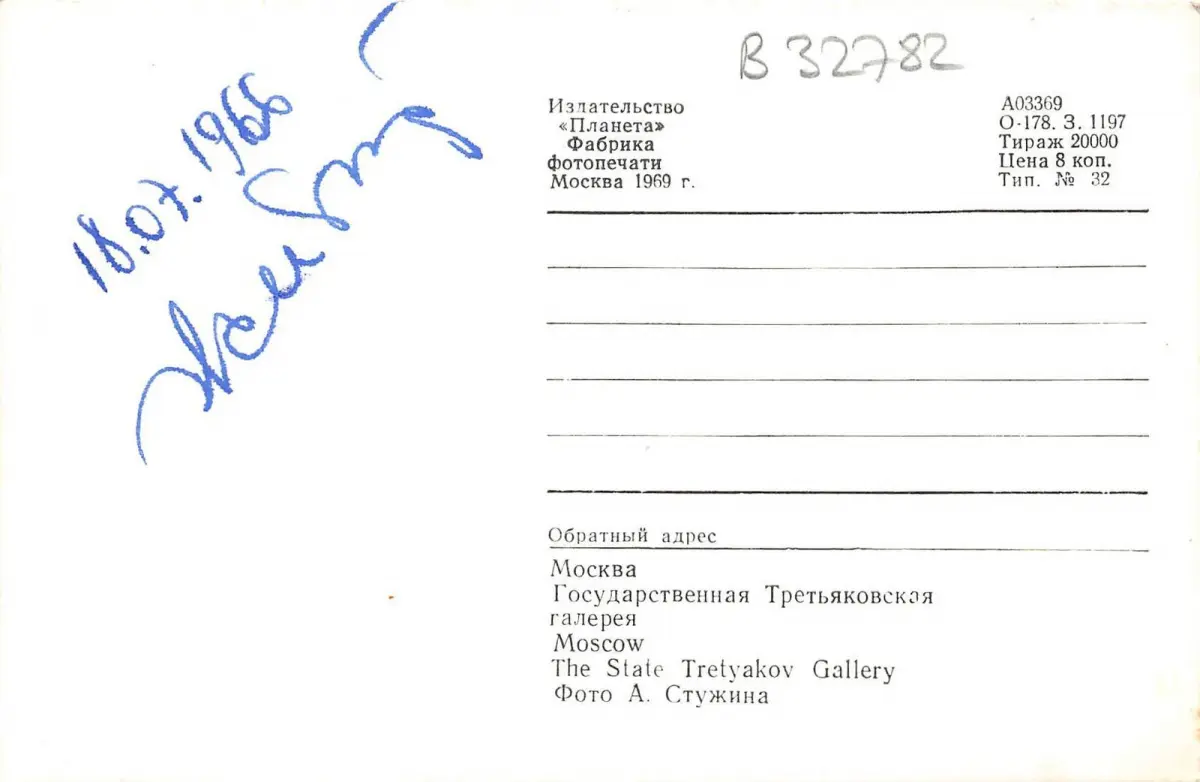 В 32782
18.07.1966
Издательство
«Планета»
Фабрика
фотопечати
Москва 1969 г.
А03369
О-178. З. 1197
Тираж 20000
Цена 8 коп.
Тип. № 32
Обратный адрес
Москва
Государственная Третьяковская
галерея
Moscow
The State Tretyakov Gallery
Фото А. Стужина